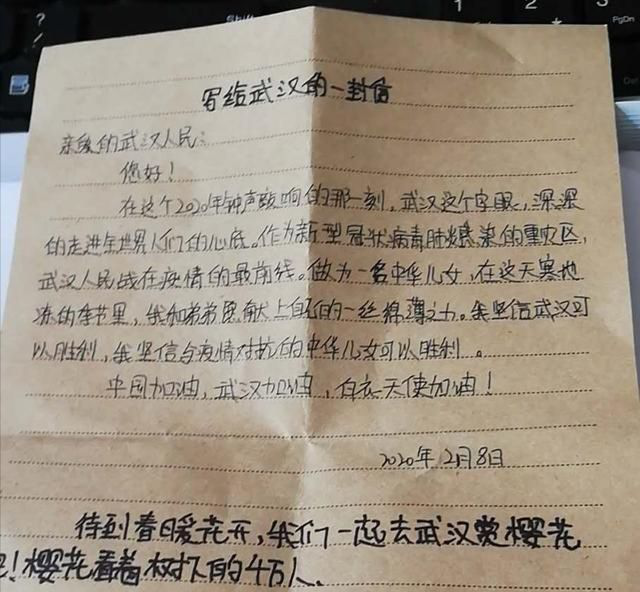 ?
/
Shift
1
2
3
PgDn
写给武汉的一封信
亲爱的武汉人民:
您好!
在这个2020年钟声敲响的那一刻,武汉这个字眼,深深
的走进全世界人们的心底。作为新型冠状病毒肺炎感染的重灾区,
武汉人民战在疫情的最前线。做为一名中华儿女,在这天寒地
冻的季节里,我和弟弟献上自己的一丝棉薄之力。我坚信武汉可
以胜利,我坚信与疫情对抗的中华儿女可以胜利。
中国加油,武汉加油,白衣天使加油!
2020年2月8日
待到春暖花开,我们一起去武汉赏樱花
吧!樱花看着树下的4万人、